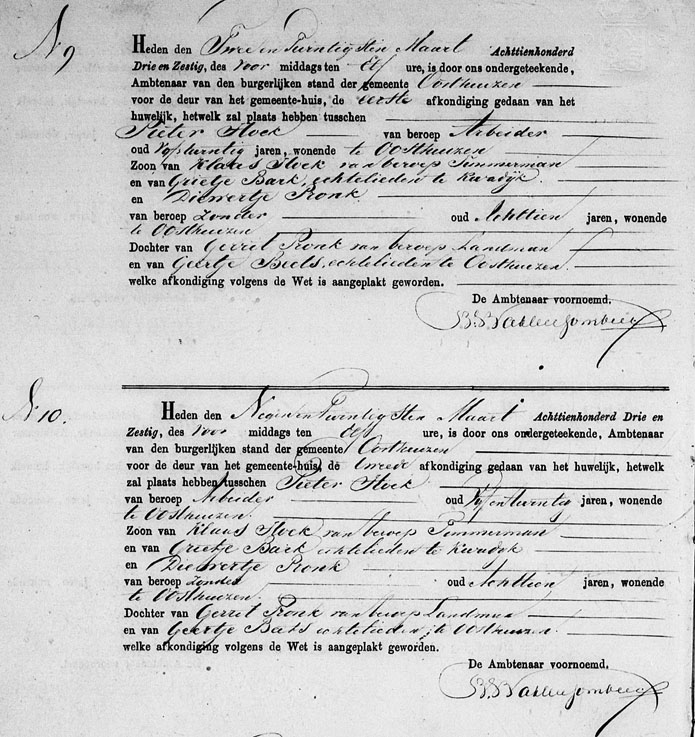 N 9
Heden den Twee en Twintigsten Maart Achttienhonderd
Drie en Zestig, des voor middags ten Elf ure, is door ons ondergeteekende,
Ambtenaar van den burgerlijken stand der gemeente Oosthuizen
voor de deur van het gemeente-huis, de eerste afkondiging gedaan van het
huwelijk, hetwelk zal plaats hebben tusschen
Pieter Stoek van beroep Arbeider
oud Vijftwintig jaren, wonende te Oosthuizen
Zoon van Klaas Stoek van beroep Timmerman
en van Grietje Bark, echtelieden te Kwadijk.
en Diewertje Ronk
van beroep zonder oud Achttien jaren, wonende
te Oosthuizen
Dochter van Gerrit Ronk van beroep Landman
en van Geertje Beets, echtelieden te Oosthuizen.
welke afkondiging volgens de Wet is aangeplakt geworden.
De Ambtenaar voornoemd.
N 10.
Heden den Negen en Twintigsten Maart Achttienhonderd Drie en
Zestig, des voor middags ten Elf ure, is door ons ondergeteekende, Ambtenaar
van den burgerlijken stand der gemeente Oosthuizen
voor de deur van het gemeente-huis, de tweede afkondiging gedaan van het huwelijk, hetwelk
zal plaats hebben tusschen Pieter Stoek
van beroep Arbeider oud Vijfentwintig jaren, wonende
te Oosthuizen.
Zoon van Klaas Stoek van beroep Timmerman
en van Grietje Bark echtelieden te Kwadijk
en Diewertje Ronk
van beroep zonder oud Achttien jaren, wonende
te Oosthuizen.
Dochter van Gerrit Ronk van beroep Landman
en van Geertje Beets echtelieden te Oosthuizen.
welke afkondiging volgens de Wet is aangeplakt geworden.
De Ambtenaar voornoemd,